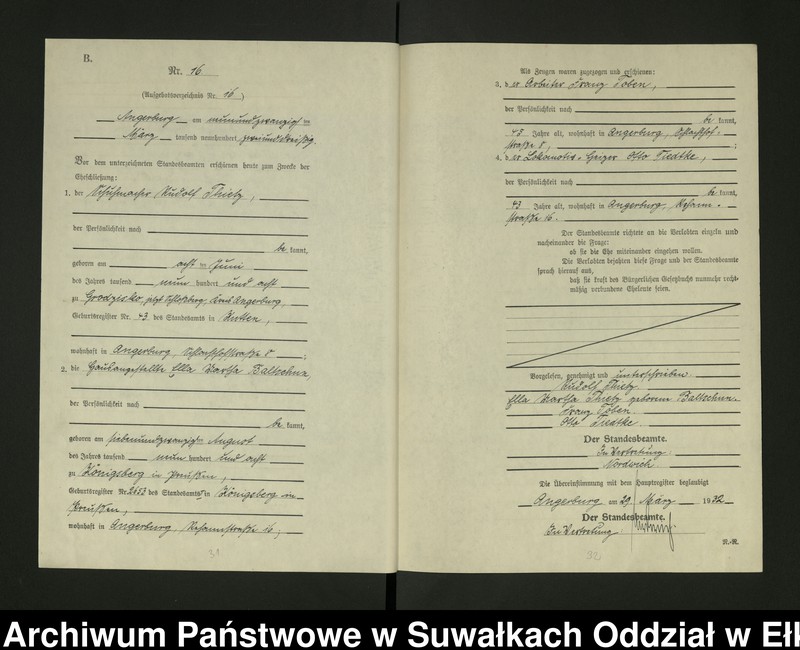 B.
Nr. 16
(Aufgebotsverzeichnis Nr. 16)
Angerburg am neunundzwanzigsten
März tausend neunhundert zweiunddreißig.
Vor dem unterzeichneten Standesbeamten erschienen heute zum Zwecke der
Eheschließung:
1. der Schuhmacher Rudolf Thietz,
der Persönlichkeit nach
be kannt,
geboren am acht ten Juni
des Jahres tausend neun hundert und acht
zu Grodzisko, jetzt Schloßberg, Kreis Angerburg,
Geburtsregister Nr. 43 des Standesamts in Kutten,
wohnhaft in Angerburg, Schlachthofstraße 8 ;
2. die Hausangestellte Ella Martha Baltschun
der Persönlichkeit nach
be kannt,
geboren am siebenundzwanzigsten August
des Jahres tausend neun hundert und acht
zu Königsberg in Preußen,
Geburtsregister Nr. 2673 des Standesamts in Königsberg in
Preußen,
wohnhaft in Angerburg, straße 16;
31
Als Zeugen waren zugezogen und erschienen:
3. der Arbeiter Franz Toben,
der Persönlichkeit nach
be kannt,
43 Jahre alt, wohnhaft in Angerburg, Schlachthof-
straße 8, ;
4. der Lokomotiv-Heizer Otto Tiedtke,
der Persönlichkeit nach
be kannt,
43 Jahre alt, wohnhaft in Angerburg,
straße 16.
Der Standesbeamte richtete an die Verlobten einzeln und
nacheinander die Frage:
ob sie die Ehe miteinander eingehen wollen.
Die Verlobten bejahten diese Frage und der Standesbeamte
sprach hierauf aus,
daß sie kraft des Bürgerlichen Gesetzbuchs nunmehr recht-
mäßig verbundene Eheleute seien.
Vorgelesen, genehmigt und unterschrieben
Rudolf Thietz.
Ella Martha Thietz geborene Baltschun.
Franz Toben.
Otto Tiedtke.
Der Standesbeamte.
In Vertretung
Nordwich
Die Übereinstimmung mit dem Hauptregister beglaubigt
Angerburg am 29. März 1932
Der Standesbeamte.
In Vertretung
R.-R.
32
Archiwum Państwowe w Suwałkach Oddział w Ełk